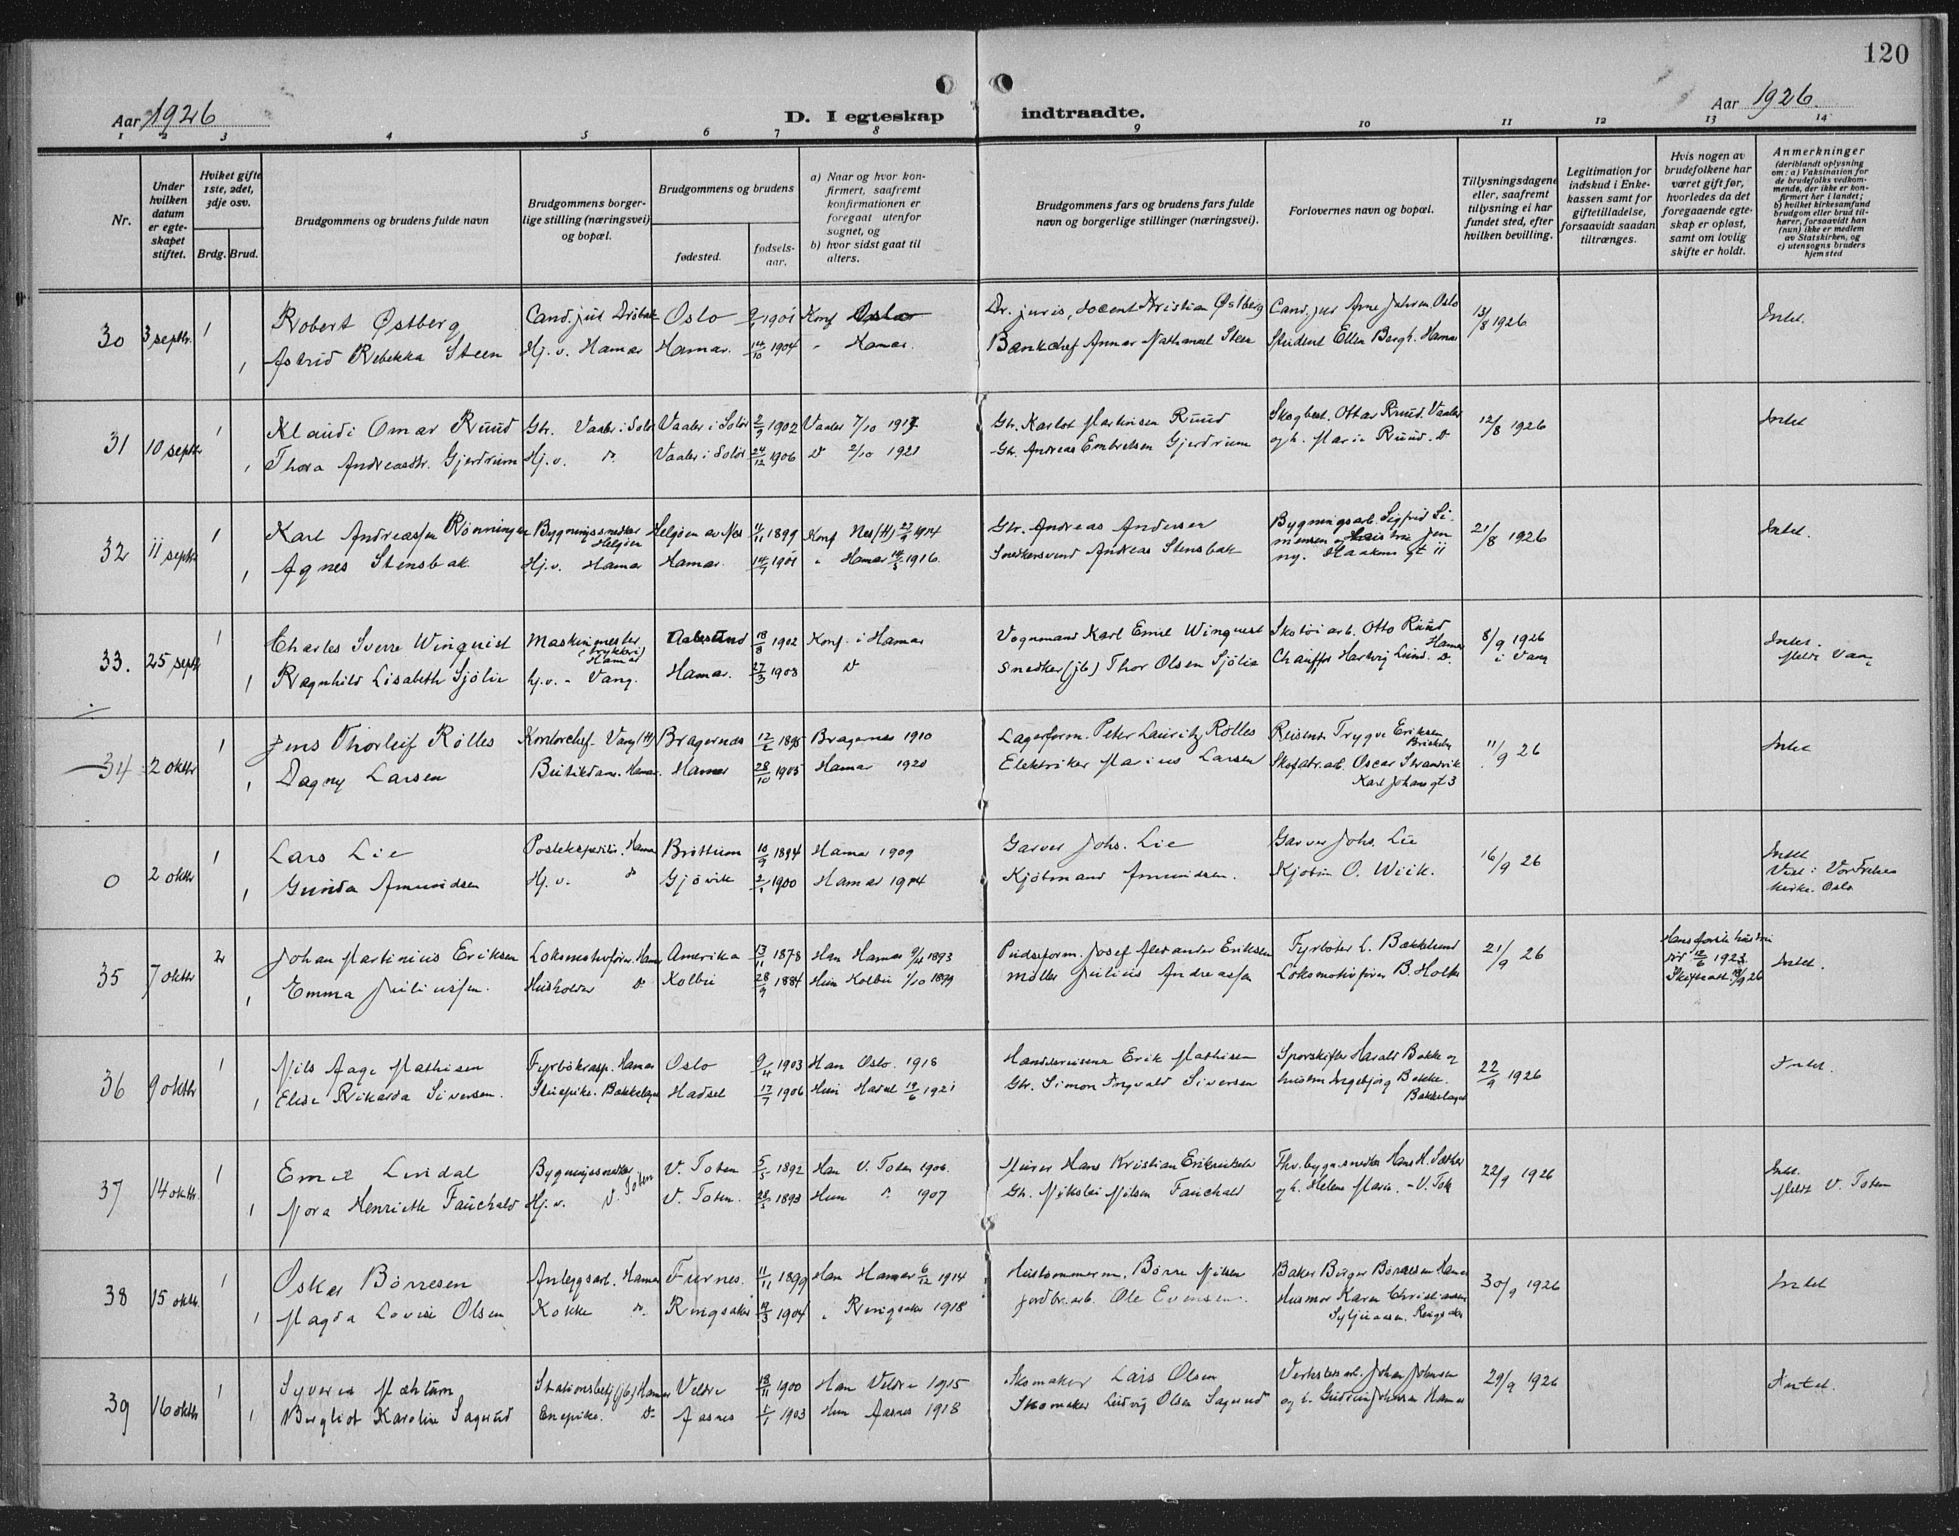 120
Aar 1926
D. I egteskap indtraadte.
Aar 1926.
1 2 3 4 5 6 7 8 9 10 11 12 13 14
Nr.
Under hvilken datum er egteskapet stiftet.
Hviket gifte 1ste, 2det, 3dje osv.
Brdg. Brud.
Brudgommens og brudens fulde navn
Brudgommens borgerlige stilling (næringsvei) og bopæl.
Brudgommens og brudens
fødested.
fødselsaar.
a) Naar og hvor konfirmert, saafremt konfirmationen er foregaat utenfor sognet, og
b) hvor sidst gaat til alters.
Brudgommens fars og brudens fars fulde navn og borgerlige stillinger (næringsvei).
Forlovernes navn og bopæl.
Tillysningsdagene eller, saafremt tillysning ei har fundet sted, efter hvilken bevilling.
Legitimation for indskud i Enkekassen samt for giftetilladelse, forsaavidt saadan tiltrænges.
Hvis nogen av brudefolkene har været gift før, hvorledes da det foregaaende egteskap er opløst, samt om lovlig skifte er holdt.
Anmerkninger (deriblandt oplysning om: a) Vaksination for de brudefolks vedkommende, der ikke er konfirmert her i landet; b) hvilket kirkesamfund brudgom eller brud tilhører, forsaavidt han (nun) ikke er medlem av Statskirken, og c) utensogns bruders hjemsted
30 3 septbr. 1 Robert Østberg Cand. jur. Oslo 1901 Konf Oslo Dr. juris, docent Kristian Østberg Cand. jur Arne Oslo 13/8 1926 Intet.
1 Astrid Rebekka Steen Hj. v. Hamar Hamar. 14/10 1904 " Hamar. Bankchef Nathanael Steen Student Ellen Bergh. Hamar
31 10 septbr 1 Klaudi Omar Ruud Gbr. Vaaler i Solør Vaaler i Solør 2/9 1902 Vaaler 7/10 1917 Gbr. Karlot Martinsen Ruud Skogbest. Ottar Ruud. Vaaler 12/8 1926 Intet
1 Thora Andreasdtr. Gjerdrum Hj. v. Do. Vaaler i Solør 24/12 1906 Do 2/10 1921 Gbr. Andreas Embretsen Gjerdrum og h. Marie Ruud. Do
32 11 septbr 1 Karl Andreassen Rønningen Bygningssnedker Helgøen Helgøen av Nes 4/11 1899 Konf Nes (H) 1914 Gbr. Andreas Andersen Bygningsarb. Sigfrid Si- 21/8 1926 Intet.
1 Agnes Stensbak Hj. v. Hamar Hamar. 14/7 1901 " Hamar 1916. Andreas Stensbak Haakons gt 11
33. 25 septbr 1 Charles Sverre Winquist Maskinmester (trykkeri) Hamar Aalesund 18/8 1902 Konf. i Hamar Vognmand Karl Emil Winquist Skotøiarb. Otto Ruud Hamar 8/9 1926 i Vang Intet.
1 Ragnhild Lisabeth Sjölie hj. v. - Vang. Hamar. 27/3 1903 Do Snedker (jb) Thor Olsen Sjölie Chauffør Hartvig Lund. Do. Vang
34 2 oktbr 1 Jens Thorleif Rölles Kontorchef. Vang (H) Bragernes 1895 Bragernes 1910 Lagerform. Peter Lauritz Rölles Reisende Trygve Eriksen 11/9 26 Intet
1 Dagny Larsen Butikdame. Hamar. Hamar 28/10 1905 Hamar 1920 Elektriker Marius Larsen Skofabr. arb. Oscar Strandvik Karl Johans gt 3
0 2 oktbr 1 Lars Lie Postekspeditør. Hamar Brøttum 10/9 1894 Hamar 1909 Garver Johs. Lie Garver Johs. Lie 16/9 26 Intet Viet i Vor Frelsers Kirke. Oslo
1 Gunda Amundsen Hj. v. Do Gjøvik 1900 Hamar 1914 Kjøbmand Amundsen. Kjøbm. O. Wiik.
35 7 oktbr 2 Johan Martinius Eriksen Lokomotivfører. Hamar Amerika 13/11 1878 Han Hamar 1893 Pudseform. Josef Alexander Eriksen Fyrbøter L. Bækkelund 21/9 26 Hans første hustru død 12/6 1923 Intet.
1 Emma Juliussen. Husholder Do. Kolbu 28/9 1884 Hun Kolbu 1/10 1899 Møller Julius Andreassen Lokomotivfører B. Holter
36 9 oktbr 1 Nils Aage Mathisen Fyrbøterasp. Hamar Oslo 9/4 1903 Han Oslo. 1918 Handelsreisende Erik Mathisen Sporskifter Harald Bakke og 22/9 1926 Intet.
1 Elise Rikarda Siversen. Stuepike. Bækkelaget Hadsel 17/7 1906 Hun Hadsel 19/6 1921 Gbr. Simon Ingvald Siversen hustru Ingebjørg Bakke. Bækkelaget
37 14 oktbr. 1 Emil Lindal Bygningssnedker V. Toten 5/5 1892 Han V. Toten 1906. Murer Hans Kristian Fhv. bygn. snedker Hans H. Sæther 22/9 1926 Intet. Meldt V. Toten
1 Nora Henriette Fauchald Hj. v. V. Toten V. Toten. 1893 Hun Do. 1907 Gbr. Nilsen Fauchald og h. Helene Marie. - V. Tot.
38 15 oktbr. 1 Oskar Børresen Anlegsarb. Hamar Furnes. 11/11 1899 Han Hamar 6/12 1914 Børre Nilsen Baker Birger Børresen Hamar 30/9 1926 Intet
1 Magda Lovise Olsen Kokke Do. Ringsaker 1904 " Ringsaker 1918 Jordbr. arb. Ole Evensen. Husmor Karen Christiansen Ringsaker
39 16 oktbr 1 Syver Mæhlum Stationsbetj. (jb) Hamar Veldre 18/11 1900 Han Veldre 1915 Skomaker Lars Olsen Verkstedarb. Johan Johnsen 29/9 1926 Intet.
1 Bergliot Karoline Sagerud Enepike. Do Aasnes 1/1 1903 Hun Aasnes 1918 Skomaker Ludvig Olsen Sagerud og h. Gudrun Johnsen Hamar